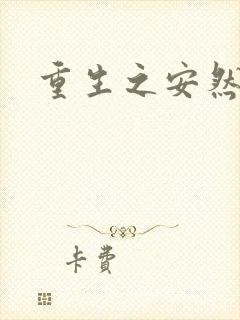 重生之安然
卡费